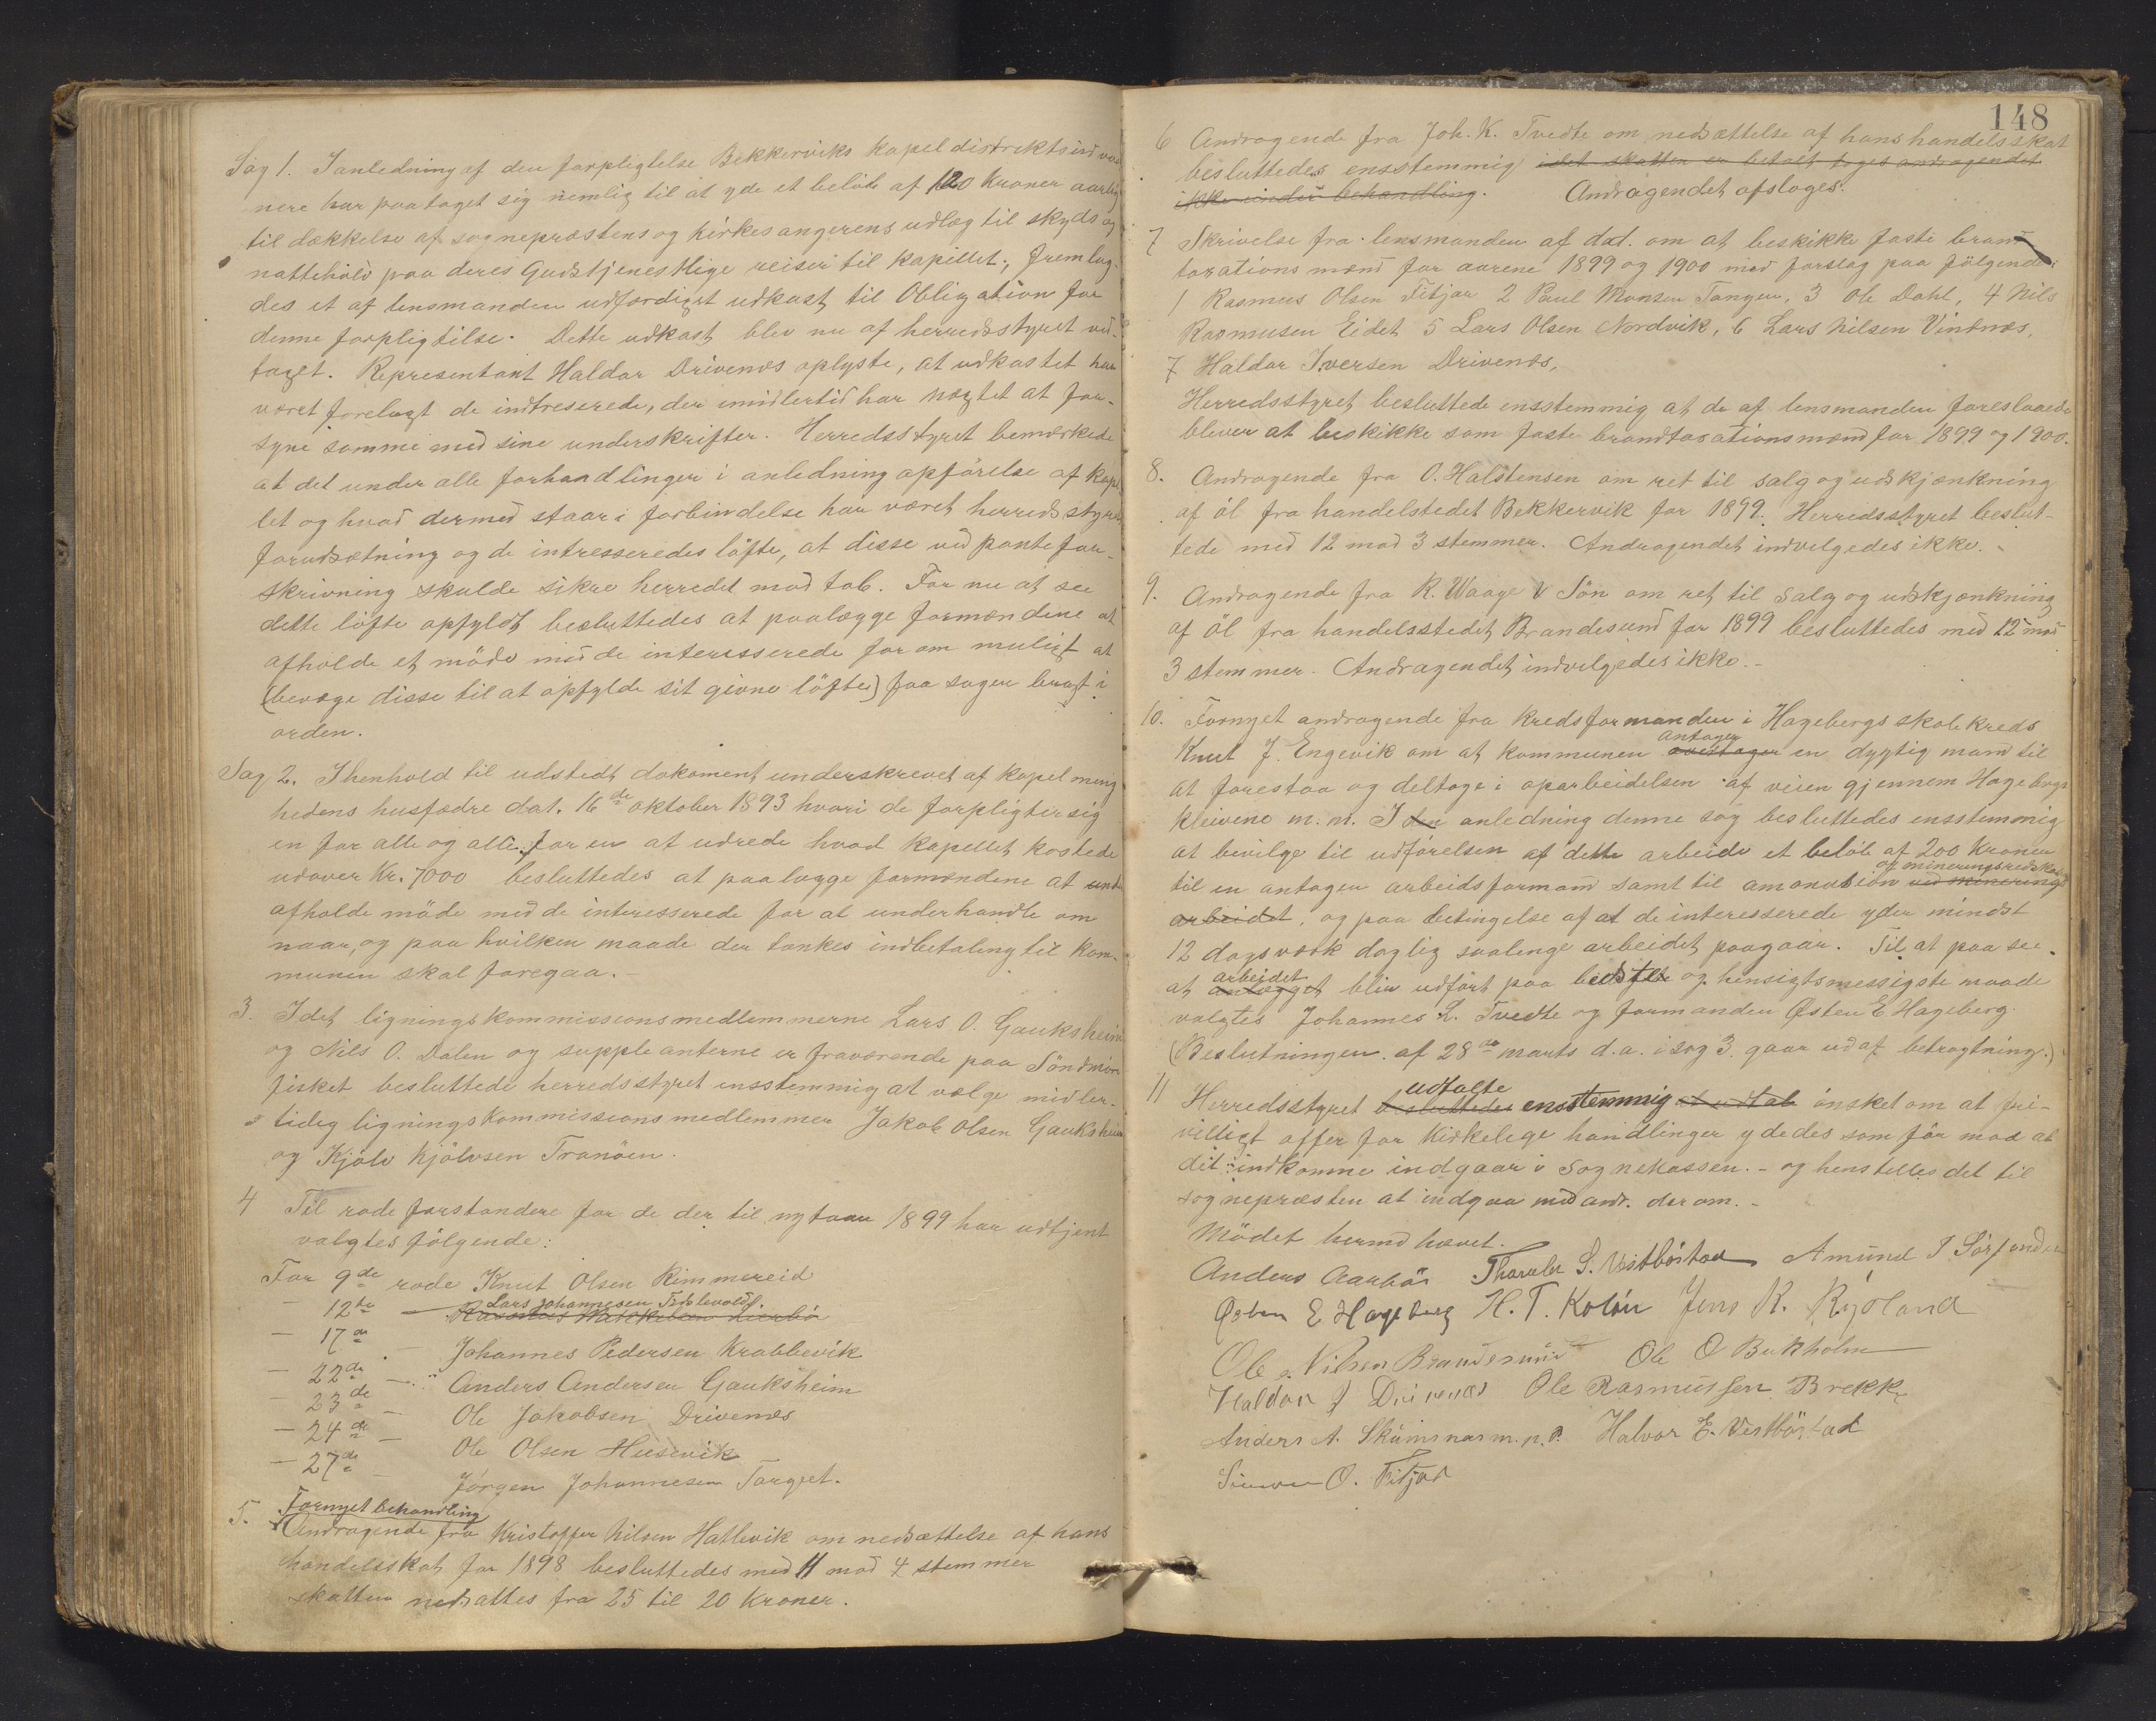 Sag 1. I anledning af den forpligtelse Bekkerviks kapeldistrikts indvaa-
nere har paataget sig nemlig til at yde et beløb af 120 Kroner aarlig
til dækkelse af sognepræstens og kirkesangerens udlæg til skyds og
nattehold paa deres Gudstjenestlige reiser til kapellet; fremlag-
des et af lensmanden udfærdiget udkast til Obligation for
denne forpligtelse. Dette udkast blev nu af herredsstyret ved-
taget. Representant Haldor Drivenæs oplyste, at udkastet har
været forelagt de indtreserede, der imidlertid har nægtet at for-
syne samme med sine underskrifter. Herredsstyret bemærkede
at det under alle forhandlinger i anledning opförelse af kapel-
let og hvad dermed staar i forbindelse har været herredsstyrets
forudsætning og de intresseredes löfte, at disse ved pantefor-
skrivning skulde sikre herredet mod tab. For nu at see
dette löfte opfyldt besluttedes at paalægge formændene at
afholde et möde med de interesserede for om muligt at
(bevæge disse til at opfylde sit givne löfte) faa sagen bragt i
orden.
Sag 2. I henhold til udstedt dokoment underskrevet af kapelmenig
hedens husfædre dat. 16de oktober 1893 hvori de forpligter sig
en for alle og alle for en at udrede hvad kapellet kostede
udover Kr. 7000 besluttedes at paalægge formændene at
afholde möde med de interesserede for at underhandle om
naar, og paa hvilken maade der tænkes indbetaling til kom-
munen skal foregaa.-
3. Idet ligningskommissionsmedlemmerne Lars O. Gauksheim
og Nils O. Dalen og suppleanterne er fraværende paa Söndmör
fisket besluttede herredsstyret ensstemmig at vælge midler-
tidig ligningskommissionsmedlemmer Jakob Olsen Gauksheim
og Kjölv Kjölvsen Tranöen.
4 Til rodeforstandere for de der til nytaar 1899 har udtjent
valgtes fölgende:
For 9de rode Knut Olsen Rimmereid
— 12te — Lars Johannesen
— 17de — Johannes Pedersen Krabbevik
— 22de — Anders Andersen Gauksheim
— 23de — Ole Jakobsen Drivenæs
— 24de — Ole Olsen Husevik
— 27de — Jørgen Johannesen Torget.
5. Fornyet behandling
Andragende fra Kristoffer Nilsen Hatlevik om nedsættelse af hans
handelsskat for 1898 besluttedes med 11 mod 4 stemmer
skatten nedsattes fra 25 til 20 Kroner.
148
6 Andragende fra Joh. K. Tvedte om nedsættelse af hans handelsskat
besluttedes ensstemmig idet skatten er betalt toges andragendet
ikke under behandling. Andragendet afsloges.
7 Skrivelse fra lensmanden af dat. om at beskikke faste brand
taxationsmænd for aarene 1899 og 1900 med forslag paa fölgende:
1 Rasmus Olsen Fitjar 2 Paul Monsen Tangen, 3 Ole Dahl, 4 Nils
Rasmusen Eidet 5 Lars Olsen Nordvik, 6 Lars Nilsen Vindnæs,
7 Haldor Iversen Drivenæs,
Herredsstyret besluttede ensstemmig at de af lensmanden foreslaaede
bliver at beskikke som faste brandtaxationsmænd for 1899 og 1900.
8. Andragende fra O. Halstensen om ret til salg og udskjænkning
af öl fra handelstedet Bekkervik for 1899. Herredsstyret beslut-
tede med 12 mod 3 stemmer. Andragendet indvilgedes ikke.
9. Andragende fra R. Waage & Sön om ret til salg og udskjænkning
af öl fra handelsstedet Brandesund for 1899 besluttedes med 12 mod
3 stemmer. Andragendet indvilgedes ikke.-
10. Fornyet andragende fra kredsformanden i Hagebergs skolekreds
Knut J. Engevik om at kommunen overtager antager en dygtig mand til
at forestaa og deltage i oparbeidelsen af veien gjennem Hagebergs
kleivene m.m. I den anledning denne sag besluttedes ensstemmig
at bevilge til udförelsen af dette arbeide et belöb af 200 Kroner
til en antagen arbeidsformand samt til amonution ved minerings og mineringsredskab
arbeidet, og paa betingelse af at de interesserede yder mindst
12 dagsværk daglig saalenge arbeidet paagaar. Til at paa see
at anlægget arbeidet blir udført paa bedste og hensigtsmessigste maade
valgtes Johannes L. Tvedte og formanden Østen E Hageberg.
(Beslutningen af 28de marts d.a. i sag 3 gaar ud af betragtning.)
11 Herredsstyret besluttede udtalte ensstemmig at udtale önsket om at fri-
villigt offer for kirkelige handlinger ydedes som för mod at
det indkomne indgaar i Sognekassen. - og henstilles det til
sognepræsten at indgaa med andr. derom.-
Mödet hermed hævet.
Anders Aarbö Thorvler S. Vestböstad Amund J Sörfonden
Østen E Hageberg H. T. Kolöen Jens R. Rydland
Ole Nilsen Brandesund Ole O Bukholm
Haldor J Drivenæs Ole Rasmussen Brekke
Anders A. Skumsnæs m.p.P. Halvor E. Vestböstad
Simon O. Fitjar